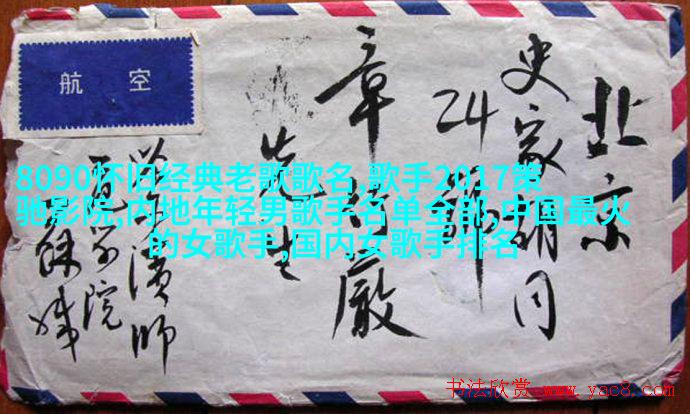 航空
北京
史家胡同
24
章
先生
滨师
学院
8090怀旧经典老歌歌名,歌手2017策
驰影院,内地年轻男歌手名单全部,中国最火
的女歌手,国内女歌手排名
书法欣赏 www.yac8.com